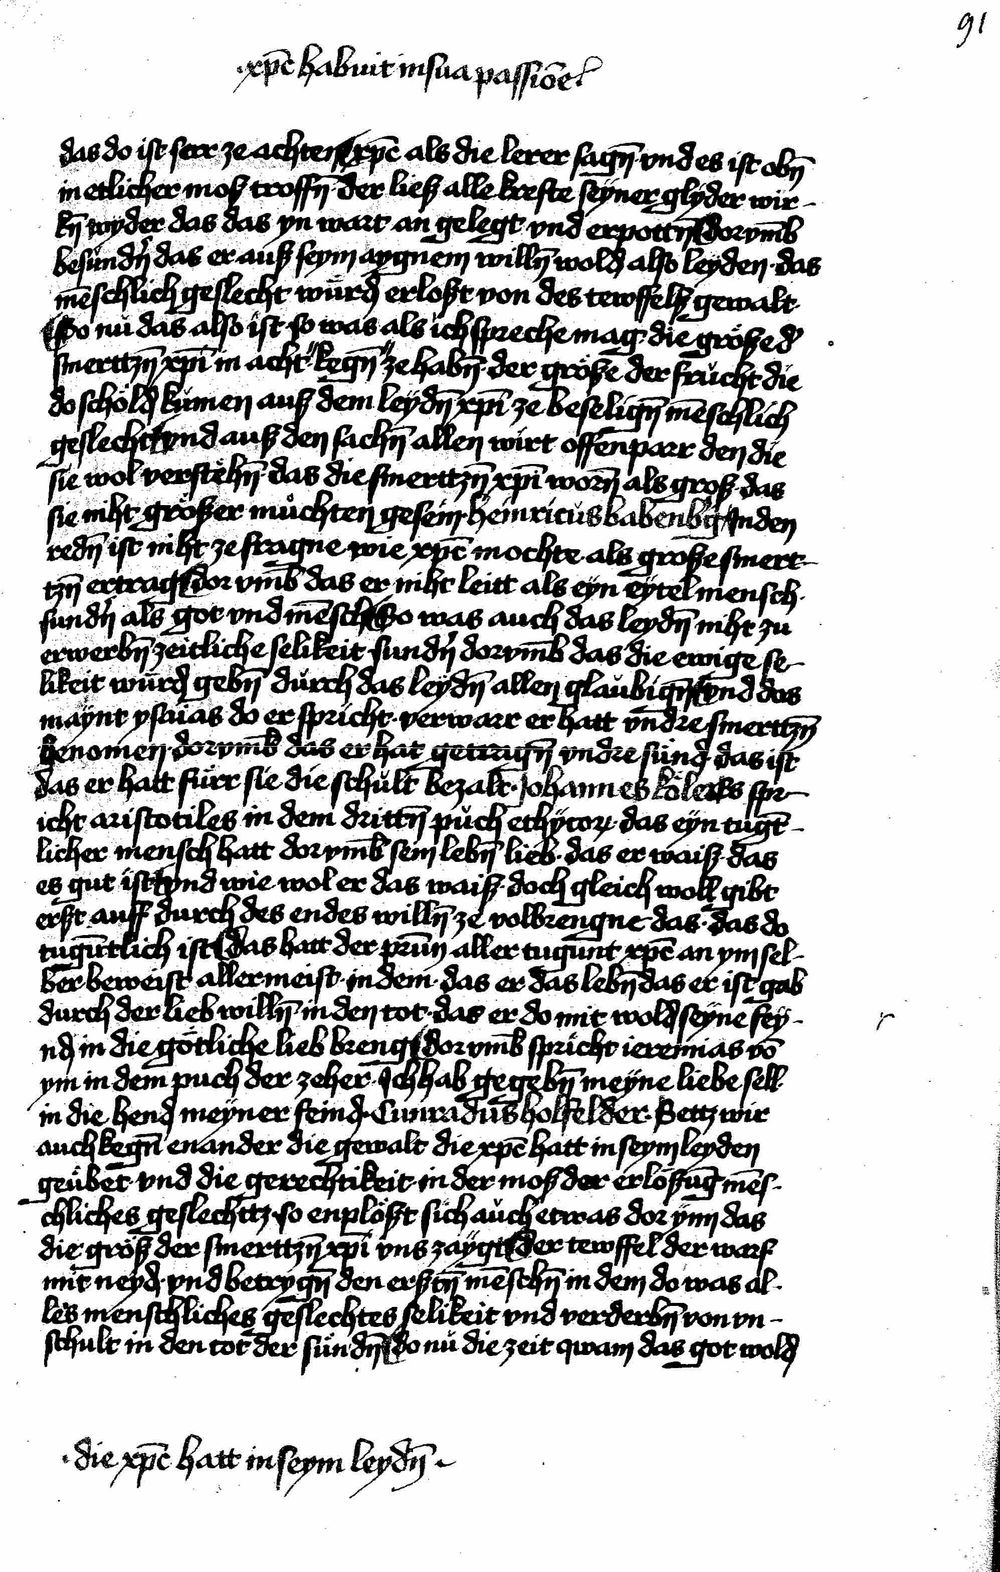 91
·xp̄c habuit in sua passiōe
das do ist serr ze achten xp̄c als die lerer sagn̄ vnd es ist obn̄
in etlicher moß troffn̄· der ließ alle krefte seyner glyder wir-
kn̄ wyder das das yn wart an gelegt vnd erpottn̄ dorvm̄b
besūndr̄n das er auß seym aygnem willn̄ wold also leyden· das
mēschlich geslecht würd erloßt von des tewffels gewalt
So nů das also ist so was als ich spreche mag· die größe der
smerttzn̄ xp̄i in acht "kegn̄" ze habn̄· der größe der frůcht die
do schöld kůmen auß dem leydn̄ xp̄i ze beselign̄ mēschlich
geslecht vnd auß den sachn̄ allen wirt offenparr den die
sie wol verstehn̄· das die smerttzn̄ xp̄i worn̄ als groß· das
sie niht größer můchten gesein· heinricus babenb̄g In den
redn̄ ist niht ze fragne wie xp̄c mochte als große smert-
tzn̄ ertrag dor vm̄b das er niht leitt als eyn eytel mensch·
sundr̄n als got vnd mēsch So was auch das leydn̄ niht zu
erwerbn̄ zeitliche selikeit· sundr̄n dorvm̄b das die ewige se-
likeit würd gebn̄ dürch das leydn̄ allen glaubign̄ vnd das
maynt ysaias do er spricht· verwarr er hatt vndre smerttzn̄
genomen· dorvm̄b das er hat getragn̄ vndre sünd· das ist
das er hatt fürr sie die schůlt bezalt· Johannes köler Es spr-
icht aristotiles in dem drittn̄ půch ethÿcoꝝ das eyn tugt̄-
licher mensch hatt dorvm̄b sein lebn̄ lieb· das er waiß· das
es gut ist vnd wie wol er das waiß· doch gleich woll gibt
erßt auff durch des endes willn̄ ze volbrengne das· das do
tugūtlich ist das hatt der prūn aller tugūnt xp̄c an ym sel-
ber beweist aller meist· in dem· das er das lebn̄ das er ist gab
durch der lieb willn̄· in den tot· das er do mit wold seyne fey-
nd in die götliche lieb breng dorvm̄b spricht ieremias vō
ym in dem puch der zeher· Ich hab gegebn̄ meyne liebe sell
in die hend meyner feind· Cunradus holfelder· Settz wir
auch kegn̄ enander die gewalt die xp̄c hatt in seym leyden
geübet· vnd die gerechtikeit· in der moß der erlößūg mēs-
chliches geslechttz· so enplößt sich aůch etwas dor ynn das
die größ der smerttzn̄ xp̄i vns zaygt der tewffel der warf
mit neyd· vnd betrygn̄ den erßtn̄ mēschn̄ in dem do was al-
les menschliches geslechtes selikeit vnd verderbn̄ von vn-
schult in den tot der sündn̄ do nů die zeit qwam das got wold
·die xp̄c hatt in seym leydn̄·